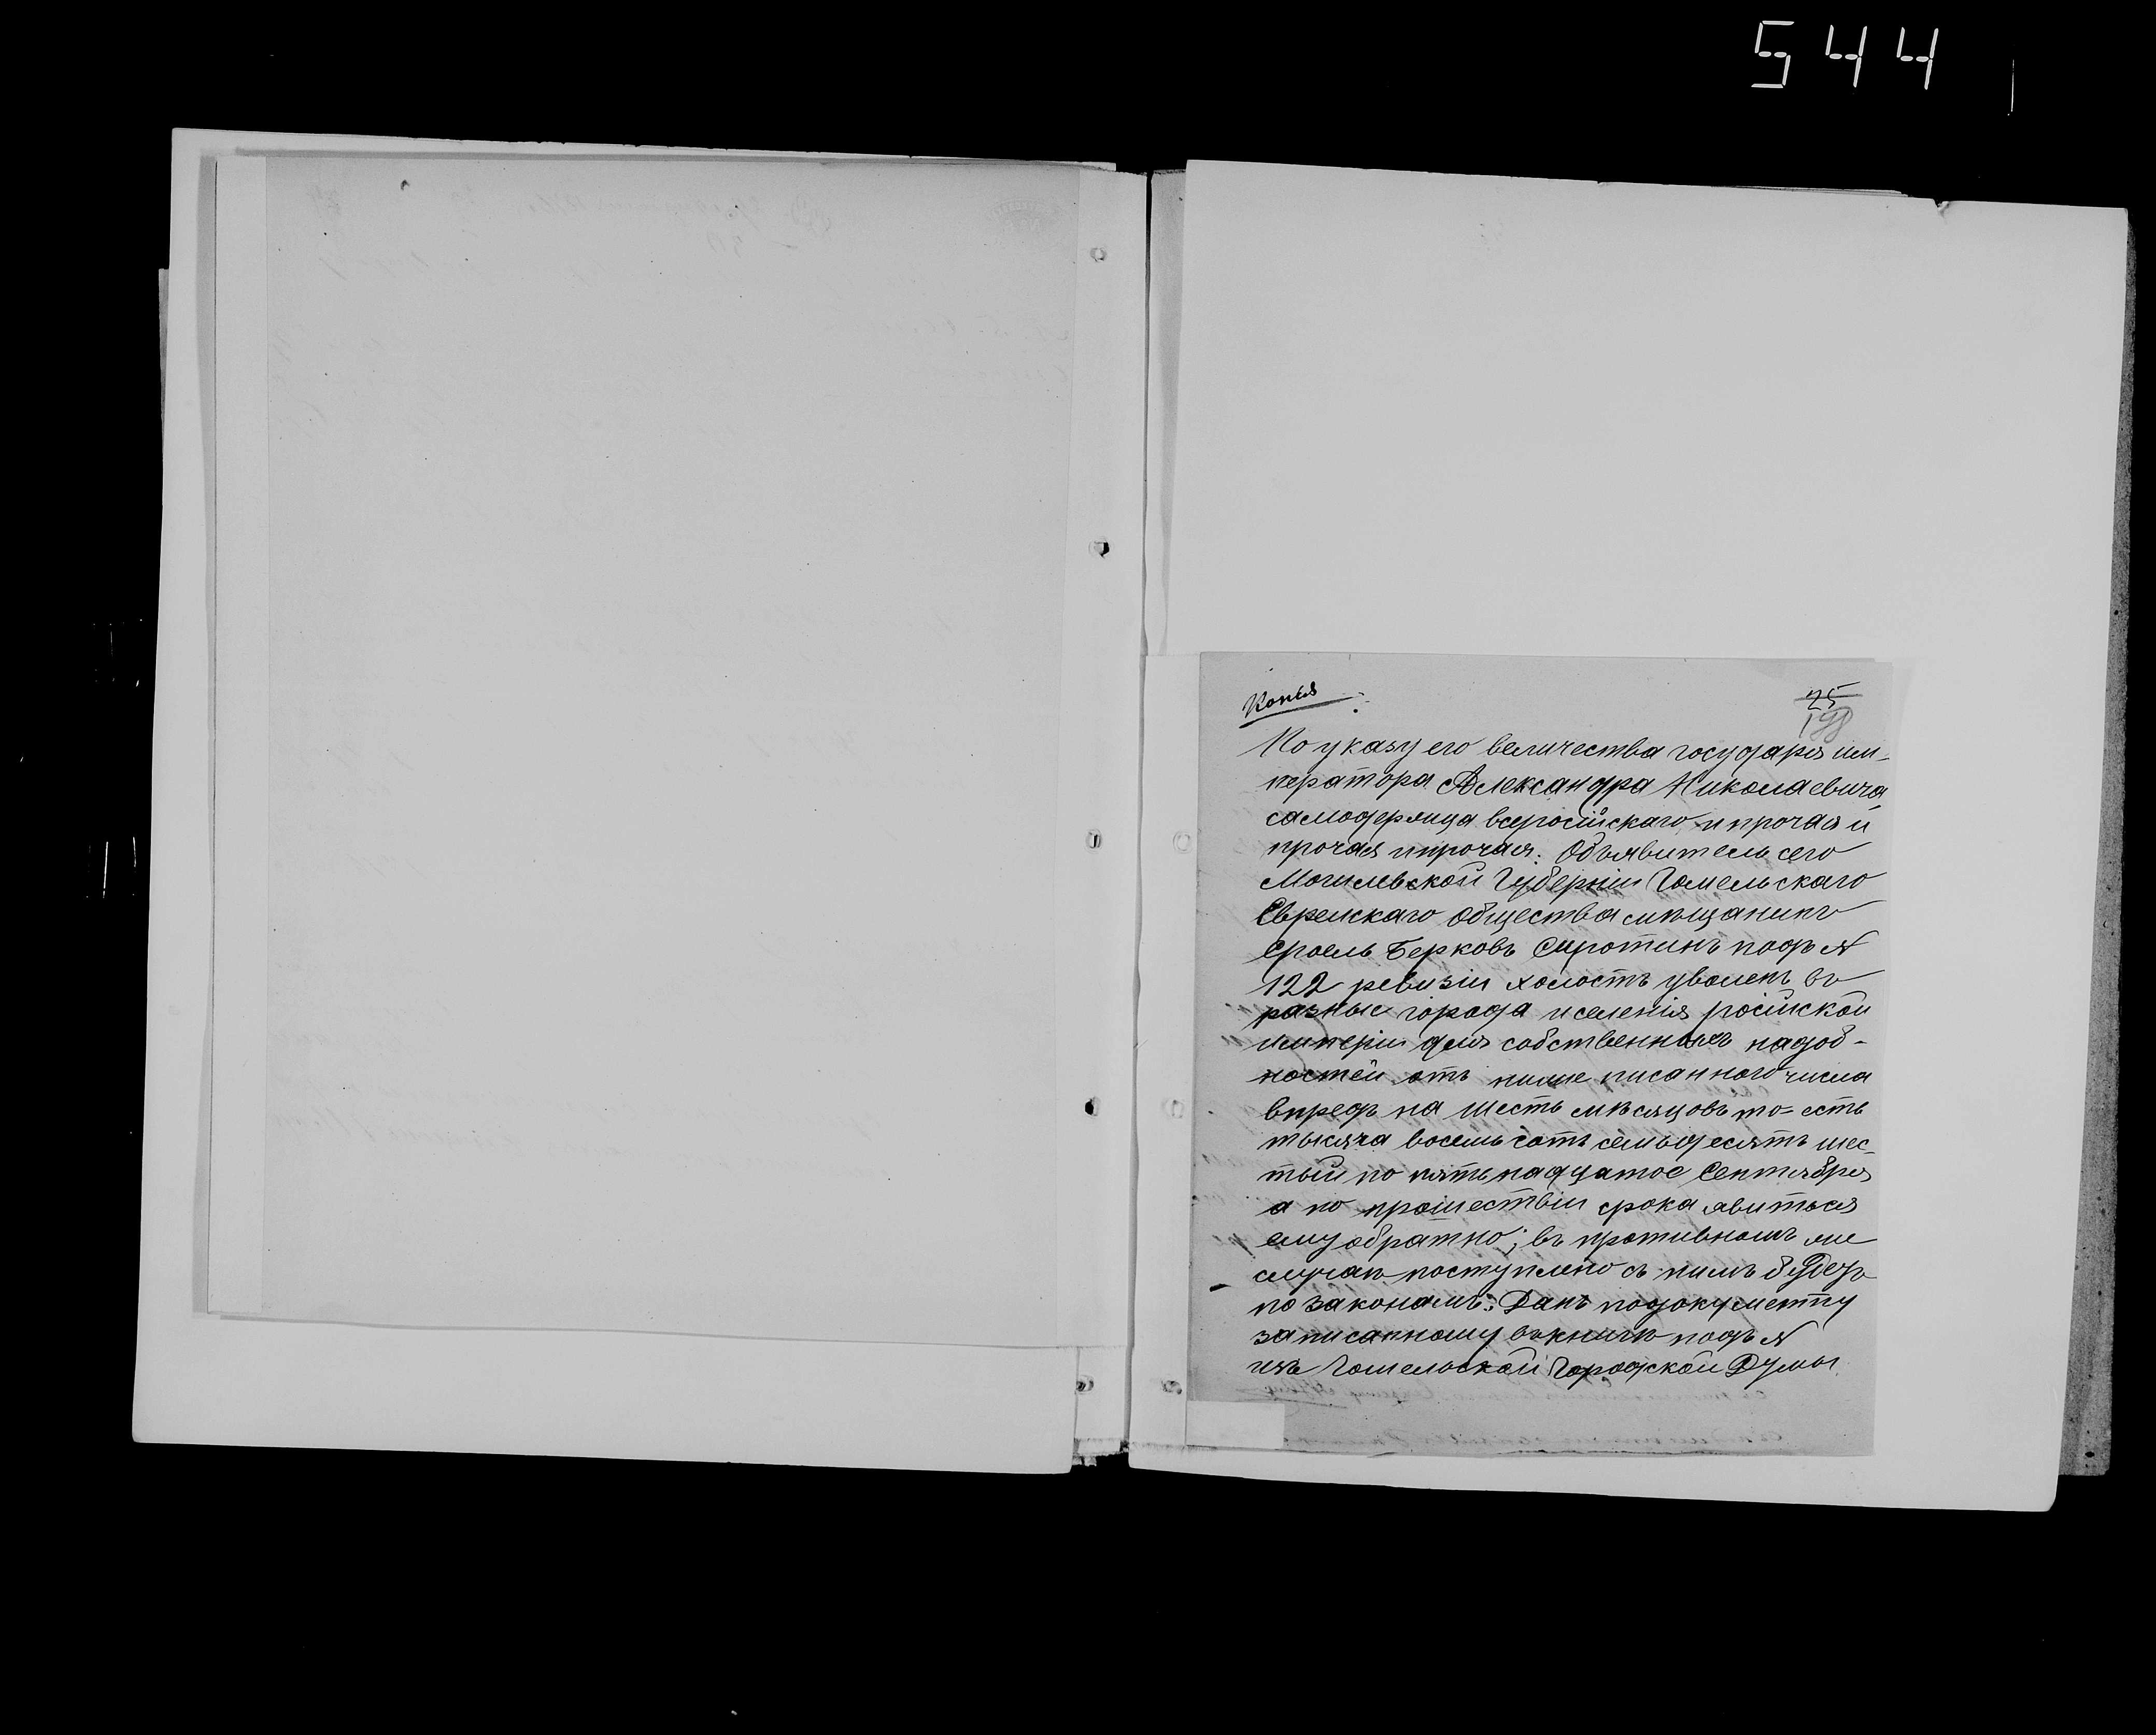 544
Копія
25
198
По указу его величества государя им-
ператора Александра Николаевича
самодержца всеросійскаго и прочая и
прочая и прочая. Объявитель сего
Могилевской Губерніи Гомельскаго
Еврейскаго общества мѣщанинъ
Сроель Берковъ Сиротинъ подъ №
122 ревизіи холостъ уволенъ въ
разные города и селенія російской
имперіи для собственныхъ надоб-
ностей отъ ниже писанного числа
впредь на шесть мѣсяцовъ то=есть
тысяча восемь сотъ семьдесятъ шес-
тый по пятьнадцатое Сентября
а по прошествіи срока явиться
ему обратно; въ противномъ же
случаѣ поступлено съ нимъ будетъ
по законамъ. Данъ подокументу
записанному въ книгѣ подъ №
изъ Гомельской Городской Думы.